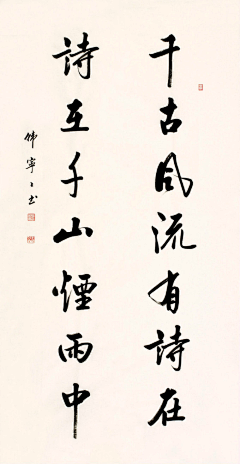 千古風流有詩在
詩在千山煙雨中
寧书